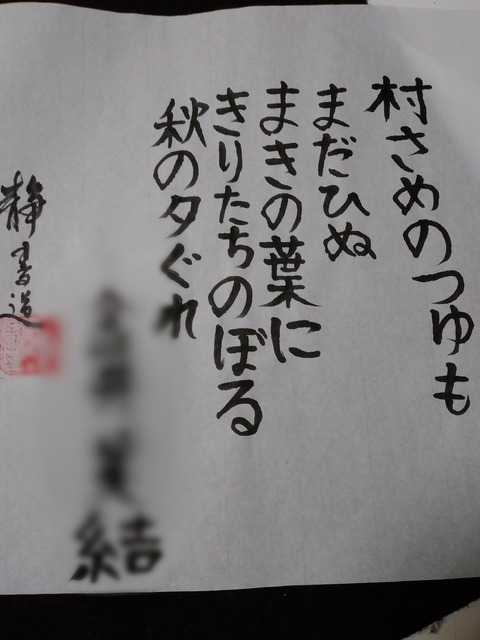 村さめのつゆも
まだひぬ
まきの葉に
きりたちのぼる
秋の夕ぐれ
結
静書道